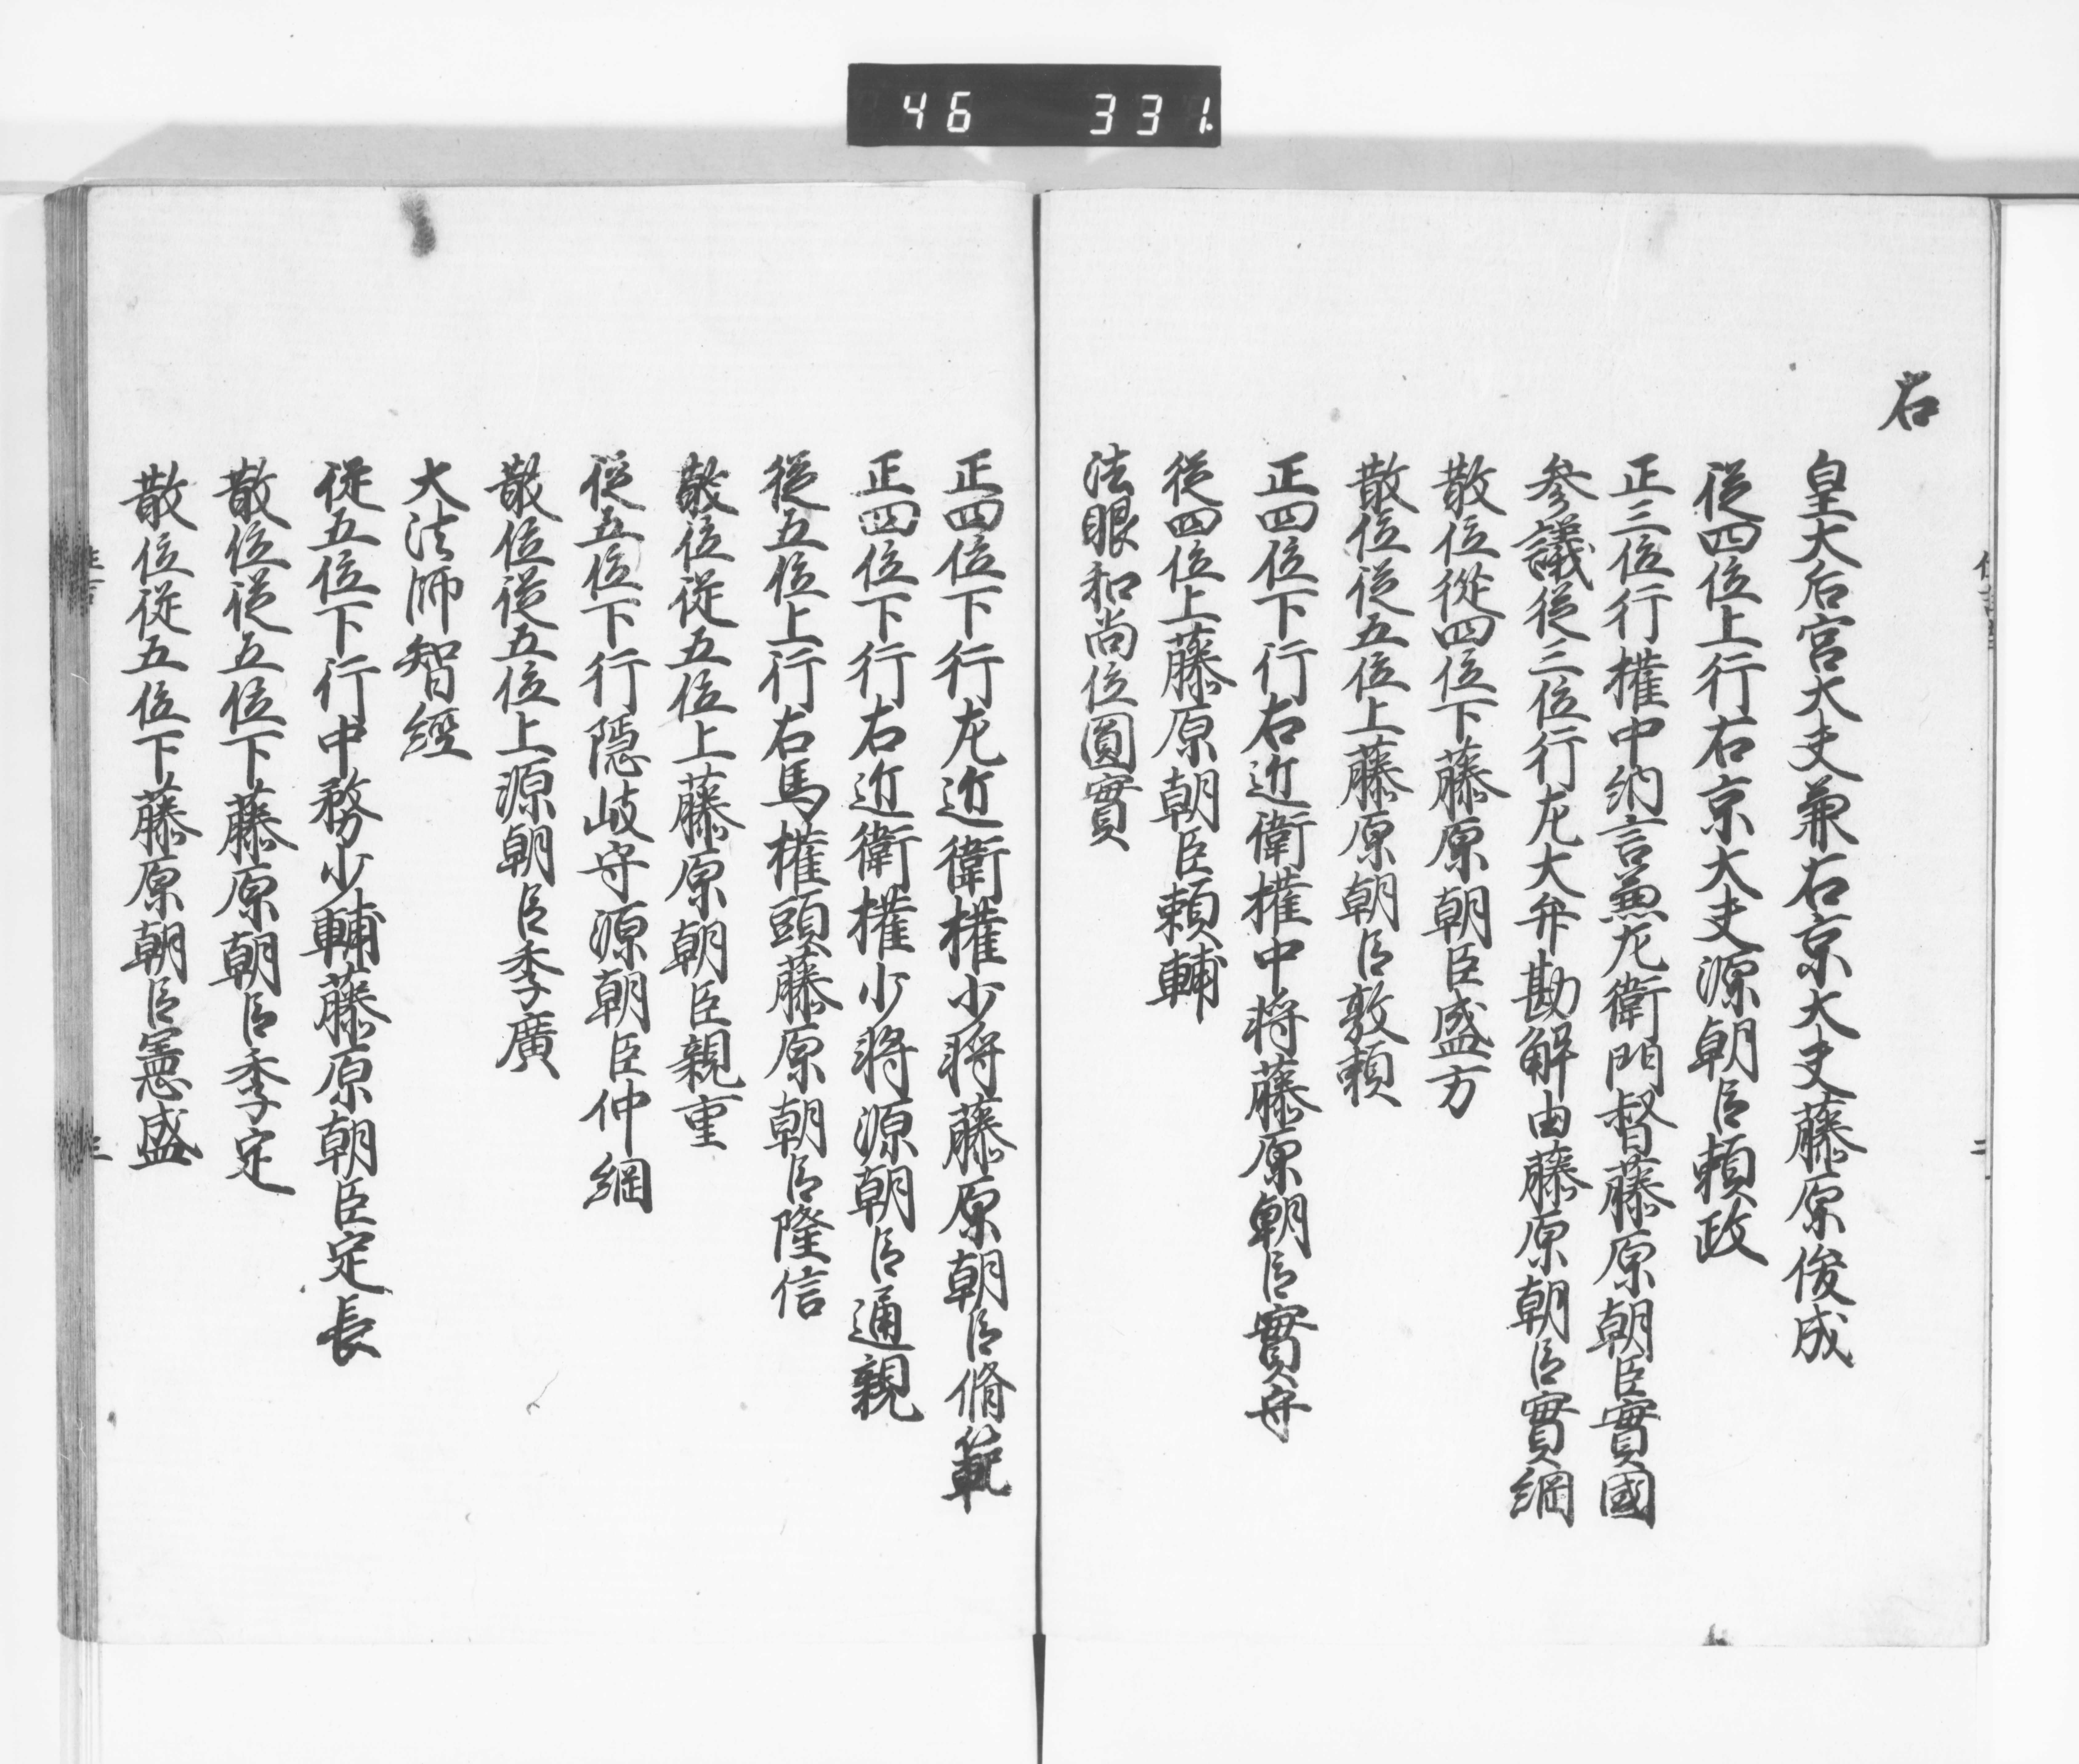 46 331
右
皇大后宮大夫兼右京大夫藤原俊成
從四位上行右京大夫源朝臣頼政
正三位行權中納言兼左衛門督藤原朝臣實國
参議從三位行左大弁勘解由藤原朝臣實綱
散位從四位下藤原朝臣盛方
散位從五位上藤原朝臣敦頼
正四位下行右近衛權中将藤原朝臣實守
從四位上藤原朝臣頼輔
法眼和尚位圓實
正四位下行左近衛權少将藤原朝臣脩範
正四位下行右近衛權少将源朝臣通親
從五位上行右馬權頭藤原朝臣隆信
散位從五位上藤原朝臣親重
從五位下行隠岐守源朝臣仲綱
散位從五位上源朝臣季廣
大法師智經
從五位下行中務少輔藤原朝臣定長
散位從五位下藤原朝臣季定
散位從五位下藤原朝臣憲盛